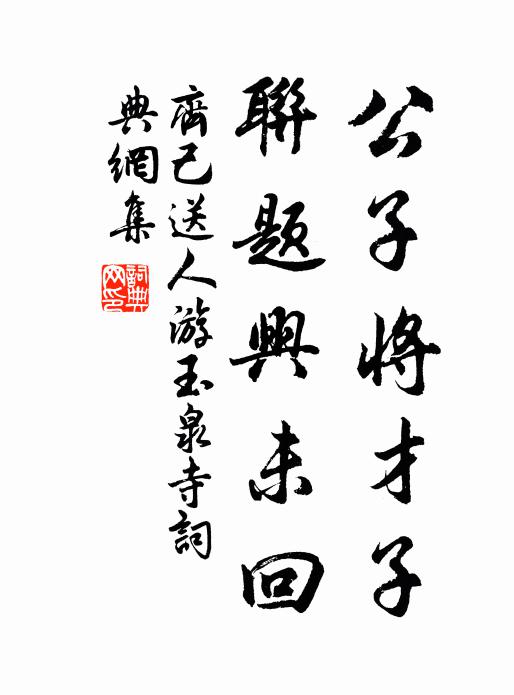 公子將才子
聯題興未回
齊己送人游玉泉寺詞
典網集
詞典网印